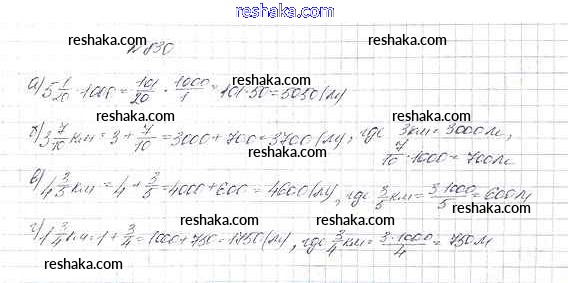 reshaka.com
reshaka.com reshaka.com
№830
reshaka.com
а) 5 1/20 · 1000 = 101/20 · 1000/1 = 101·50 = 5050 (м)
reshaka.com reshaka.com
б) 3 7/10 км = 3 + 7/10 = 3000 + 700 = 3700 (м), где 3км = 3000м,
7/10 · 1000 = 700м
reshaka.com
reshaka.com reshaka.com
в) 4 3/5 км = 4 + 3/5 = 4000 + 600 = 4600 (м), где 3/5 км = 3·1000/5 = 600м
reshaka.com reshaka.com
г) 1 3/4 км = 1 + 3/4 = 1000 + 750 = 1750 (м), где 3/4 км = 3·1000/4 = 750м
reshaka.com
reshaka.com